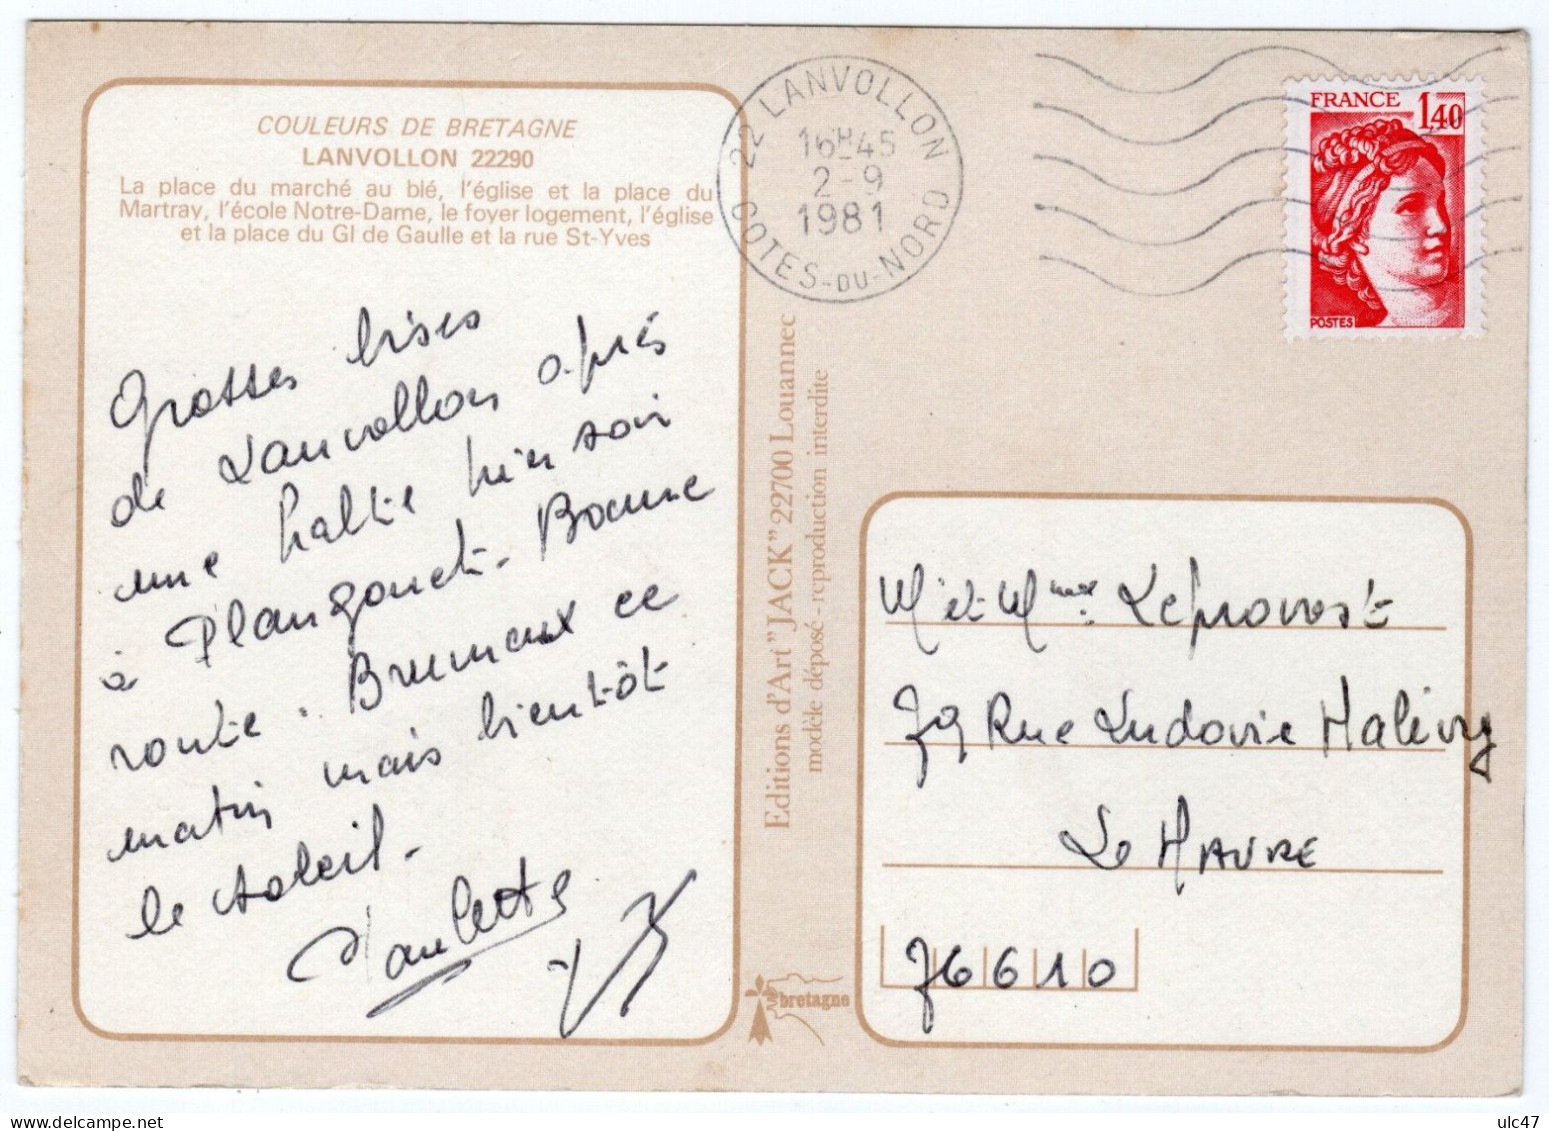 COULEURS DE BRETAGNE
LANVOLLON 22290
La place du marché au blé, l'église et la place du
Martray, l'école Notre-Dame, le foyer logement, l'église
et la place du Gl de Gaulle et la rue St-Yves
Grosses bises
de Lanvollon après
une halte hier soir
à Plangonet. Bonne
route. Brumeux ce
matin mais bientôt
le soleil.
Paulette
22 LANVOLLON
16H45
2-9
1981
COTES-DU-NORD
FRANCE
1,40
POSTES
Editions d'Art "JACK" 22700 Louannec
modèle déposé - reproduction interdite
bretagne
Mr et Mme Leprovost
79 Rue Ludovic Halévy
Le HAVRE
76610
ulc47